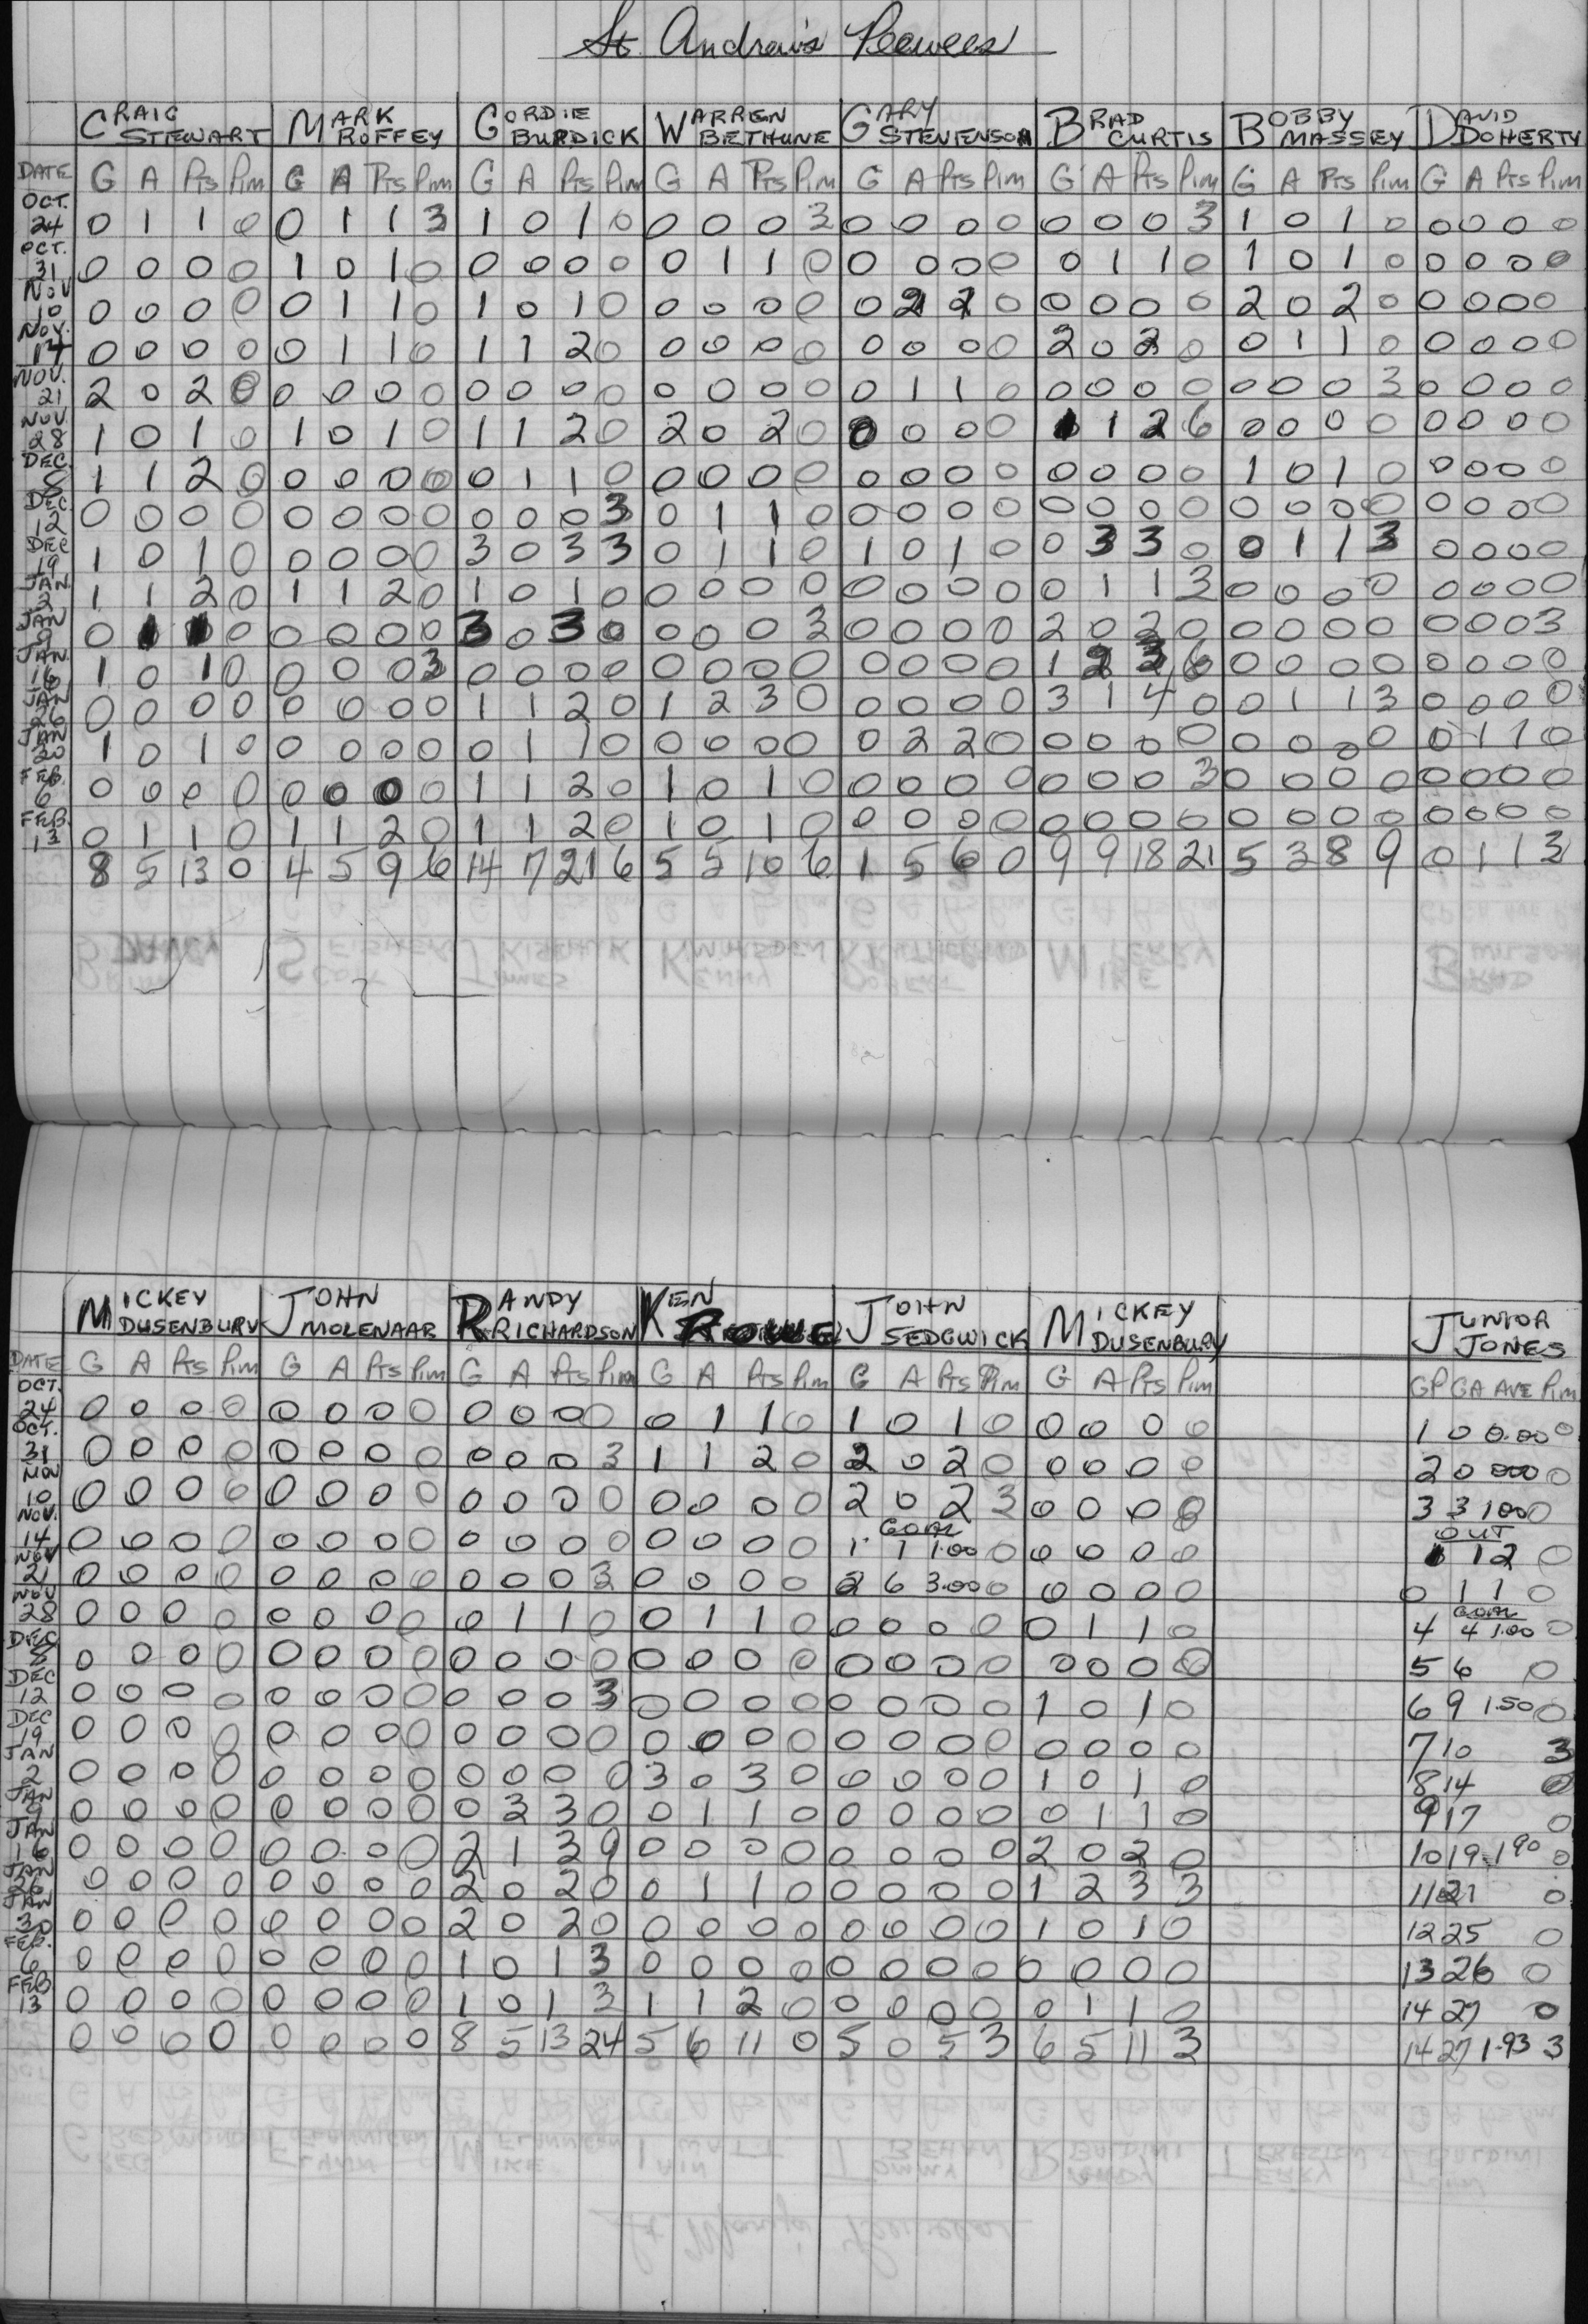 St. Andrew's Peewees
CRAIG STEWART MARK ROFFEY GORDIE BURDICK WARREN BETHUNE GARY STEVENSON BRAD CURTIS BOBBY MASSEY DAVID DOHERTY
DATE G A Pts Pim G A Pts Pim G A Pts Pim G A Pts Pim G A Pts Pim G A Pts Pim G A Pts Pim G A Pts Pim
OCT. 24 0 1 1 0 0 1 1 3 1 0 1 0 0 0 0 3 0 0 0 0 0 0 0 3 1 0 1 0 0 0 0 0
OCT. 31 0 0 0 0 1 0 1 0 0 0 0 0 0 1 1 0 0 0 0 0 0 1 1 0 1 0 1 0 0 0 0 0
NOV 10 0 0 0 0 0 1 1 0 1 0 1 0 0 0 0 0 0 2 2 0 0 0 0 0 2 0 2 0 0 0 0 0
NOV. 14 0 0 0 0 0 1 1 0 1 1 2 0 0 0 0 0 0 0 0 0 2 0 2 0 0 1 1 0 0 0 0 0
NOV. 21 2 0 2 0 0 0 0 0 0 0 0 0 0 0 0 0 0 1 1 0 0 0 0 0 0 0 0 3 0 0 0 0
NOV. 28 1 0 1 0 1 0 1 0 1 1 2 0 2 0 2 0 0 0 0 0 1 1 2 6 0 0 0 0 0 0 0 0
DEC. 5 1 1 2 0 0 0 0 0 0 1 1 0 0 0 0 0 0 0 0 0 0 0 0 0 1 0 1 0 0 0 0 0
DEC. 12 0 0 0 0 0 0 0 0 0 0 0 3 0 1 1 0 0 0 0 0 0 0 0 0 0 0 0 0 0 0 0 0
DEC 19 1 0 1 0 0 0 0 0 3 0 3 3 0 1 1 0 1 0 1 0 0 3 3 0 0 1 1 3 0 0 0 0
JAN 2 1 1 2 0 1 1 2 0 1 0 1 0 0 0 0 0 0 0 0 0 0 1 1 3 0 0 0 0 0 0 0 0
JAN 9 0 1 1 0 0 0 0 0 3 0 3 0 0 0 0 3 0 0 0 0 2 0 2 0 0 0 0 0 0 0 0 3
JAN. 16 1 0 1 0 0 0 0 3 0 0 0 0 0 0 0 0 0 0 0 0 1 2 3 6 0 0 0 0 0 0 0 0
JAN 26 0 0 0 0 0 0 0 0 1 1 2 0 1 2 3 0 0 0 0 0 3 1 4 0 0 1 1 3 0 0 0 0
JAN 30 1 0 1 0 0 0 0 0 0 1 1 0 0 0 0 0 0 2 2 0 0 0 0 0 0 0 0 0 0 1 1 0
FEB. 6 0 0 0 0 0 0 0 0 1 1 2 0 1 0 1 0 0 0 0 0 0 0 0 3 0 0 0 0 0 0 0 0
FEB. 13 0 1 1 0 1 1 2 0 1 1 2 0 1 0 1 0 0 0 0 0 0 0 0 0 0 0 0 0 0 0 0 0
8 5 13 0 4 5 9 6 14 7 21 6 5 5 10 6 1 5 6 0 9 9 18 21 5 3 8 9 0 1 1 3
MICKEY DUSENBURY JOHN MOLENAAR RANDY RICHARDSON KEN ROUUE JOHN SEDGWICK MICKEY DUSENBURY JUNIOR JONES
DATE G A Pts Pim G A Pts Pim G A Pts Pim G A Pts Pim G A Pts Pim G A Pts Pim GP GA AVE Pim
OCT. 24 0 0 0 0 0 0 0 0 0 0 0 0 0 1 1 0 1 0 1 0 0 0 0 0 1 0 0.00 0
OCT. 31 0 0 0 0 0 0 0 0 0 0 0 3 1 1 2 0 2 0 2 0 0 0 0 0 2 0 000 0
NOV 10 0 0 0 0 0 0 0 0 0 0 0 0 0 0 0 0 2 0 2 3 0 0 0 0 3 3 100 0
GOAL OUT
NOV. 14 0 0 0 0 0 0 0 0 0 0 0 0 0 0 0 0 1 1 1.00 0 0 0 0 0 1 1 2 0
NOV 21 0 0 0 0 0 0 0 0 0 0 0 3 0 0 0 0 2 6 3.00 0 0 0 0 0 0 1 1 0
GOAL
NOV 28 0 0 0 0 0 0 0 0 0 1 1 0 0 1 1 0 0 0 0 0 0 1 1 0 4 4 1.00 0
DEC 5 0 0 0 0 0 0 0 0 0 0 0 0 0 0 0 0 0 0 0 0 0 0 0 0 5 6 0
DEC 12 0 0 0 0 0 0 0 0 0 0 0 3 0 0 0 0 0 0 0 0 1 0 1 0 6 9 1.50 0
DEC 19 0 0 0 0 0 0 0 0 0 0 0 0 0 0 0 0 0 0 0 0 0 0 0 0 7 10 3
JAN 2 0 0 0 0 0 0 0 0 0 0 0 0 3 0 3 0 0 0 0 0 1 0 1 0 8 14 0
JAN 9 0 0 0 0 0 0 0 0 0 3 3 0 0 1 1 0 0 0 0 0 0 1 1 0 9 17 0
JAN 16 0 0 0 0 0 0 0 0 2 1 3 9 0 0 0 0 0 0 0 0 2 0 2 0 10 19 1.90 0
JAN 26 0 0 0 0 0 0 0 0 2 0 2 0 0 1 1 0 0 0 0 0 1 2 3 3 11 21 0
JAN 30 0 0 0 0 0 0 0 0 2 0 2 0 0 0 0 0 0 0 0 0 1 0 1 0 12 25 0
FEB. 6 0 0 0 0 0 0 0 0 1 0 1 3 0 0 0 0 0 0 0 0 0 0 0 0 13 26 0
FEB 13 0 0 0 0 0 0 0 0 1 0 1 3 1 1 2 0 0 0 0 0 0 1 1 0 14 27 0
0 0 0 0 0 0 0 0 8 5 13 24 5 6 11 0 5 0 5 3 6 5 11 3 14 27 1.93 3